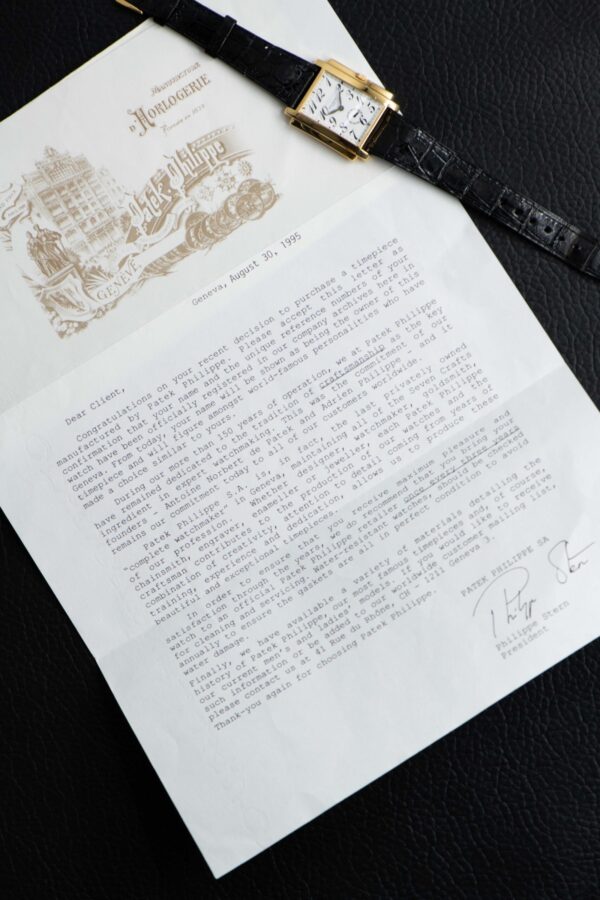 Manufacture
D'HORLOGERIE
Fondée en 1839
Patek Philippe
GENÈVE
Geneva, August 30, 1995
Dear Client,
Congratulations on your recent decision to purchase a timepiece
manufactured by Patek Philippe. Please accept this letter as
confirmation that your name and the unique reference numbers of your
watch have been officially registered in our company archives here in
Geneva. From today, your name will be shown as being the owner of this
timepiece and will figure amongst world-famous personalities who have
made a choice similar to yours.
During our more than 150 years of operation, we at Patek Philippe
have remained dedicated to the tradition of craftsmanship as the key
ingredient in expert watchmaking. This was the commitment of our
founders - Antoine Norbert de Patek and Adrien Philippe - and it
remains our commitment today to all of our customers worldwide.
Patek Philippe S.A. is, in fact, the last privately owned
"complete watchmaker" in Geneva, maintaining all of the Seven Crafts
of our profession. Whether designer, watchmaker, goldsmith,
chainsmith, engraver, enameller or jeweller, each Patek Philippe
craftsman contributes to the production of our watches and the
combination of creativity, attention to detail coming from years of
training, experience and dedication, allows us to produce these
beautiful and exceptional timepieces.
In order to ensure that you receive maximum pleasure and
satisfaction through the years, we do recommend that you bring your
watch to an official Patek Philippe retailer once every three years
for cleaning and servicing. Water-resistant watches should be checked
annually to ensure the gaskets are all in perfect condition to avoid
water damage.
Finally, we have available a variety of materials detailing the
history of Patek Philippe, our most famous timepieces and, of course,
our current men's and ladies' models. If you would like to receive
such information or be added to our worldwide customer mailing list,
please contact us at 41 Rue du Rhône, CH - 1211 Geneva 3.
Thank-you again for choosing Patek Philippe.
PATEK PHILIPPE SA
Philippe Stern
Philippe Stern
President